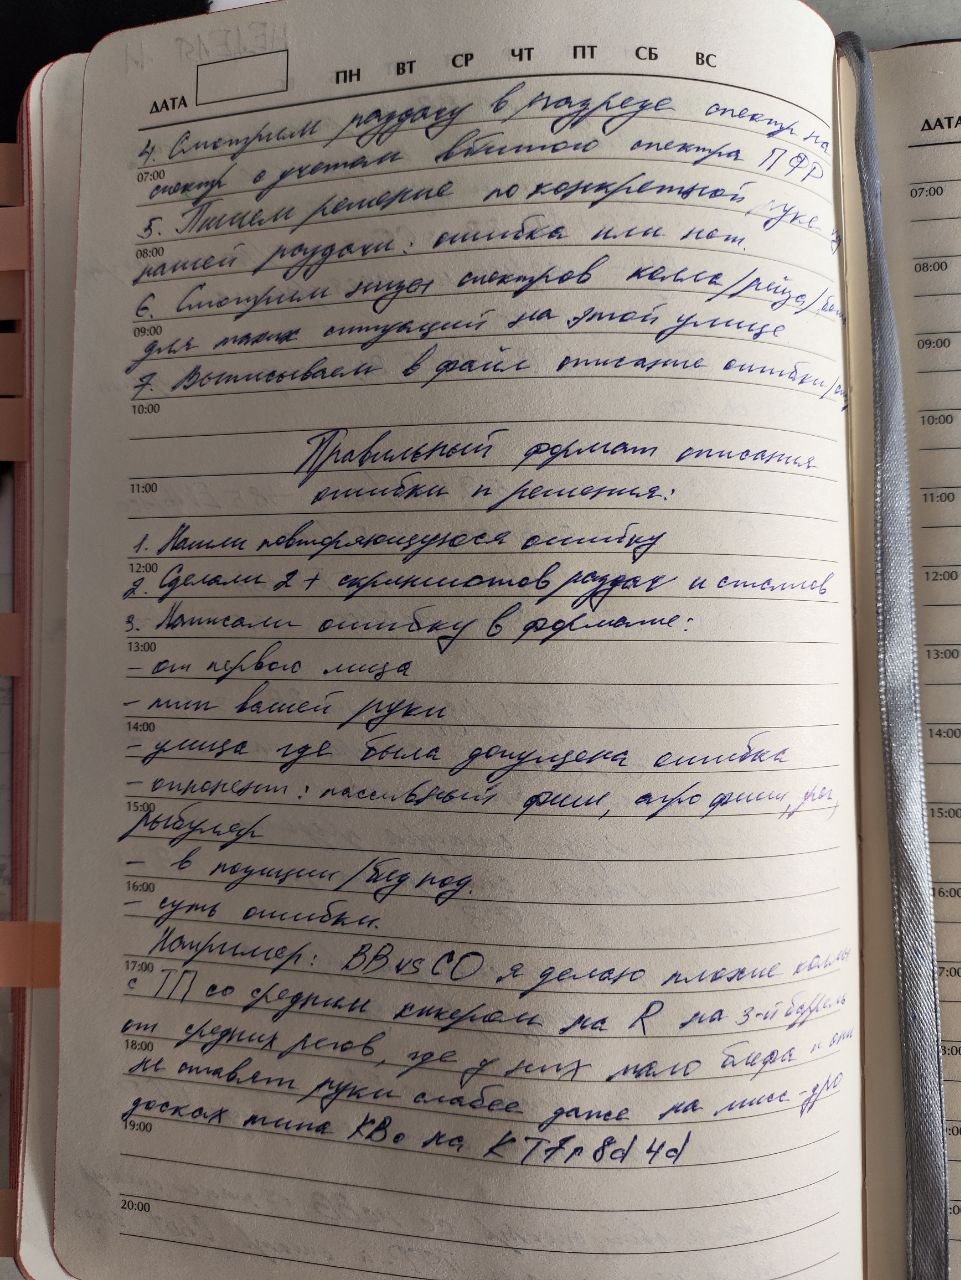 НЕДЕЛЯ 11
ДАТА ПН ВТ СР ЧТ ПТ СБ ВС
4. Смотрим раздачу в разрезе спектр на
07:00
спектр с учетом вбитого спектра ПФР
5. Пишем решение по конкретной руке
08:00
нашей раздачи: ошибка или нет.
6. Смотрим низы спектров колла/рейза/
09:00
для таких ситуаций на этой улице
7. Выписываем в файл описание ошибки/
10:00
Правильный формат описания
11:00
ошибки и решения:
1. Нашли повторяющуюся ошибку
12:00
2. Сделали 2+ скриншотов раздач и статов
3. Написали ошибку в формате:
13:00
- от первого лица
- тип вашей руки
14:00
- улица где была допущена ошибка
- оппонент: пассивный фиш, агро фиш, рег,
15:00
рыбуляр
- в позиции/без поз.
16:00
- суть ошибки.
Например: BB vs CO я делаю плохие коллы
17:00
с ТП со средним кикером на R на 3-й баррель
от средних регов, где у них мало блефа и они
18:00
не ставят руки слабее даже на мисс-дро
досках типа КВо на КТ7r8d4d
19:00
20:00
ДАТА
07:00
08:00
09:00
10:00
11:00
12:00
13:00
14:00
15:00
16:00